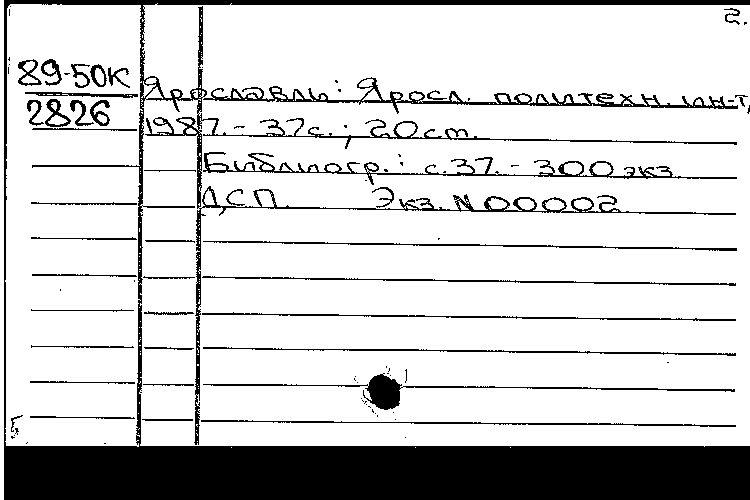 2.
89-50К
2826
Ярославль: Яросл. политехн. ин-т,
1987. - 37с.; 20см.
Библиогр.: с.37. - 300 экз.
ДСП. Экз. N 00002
5